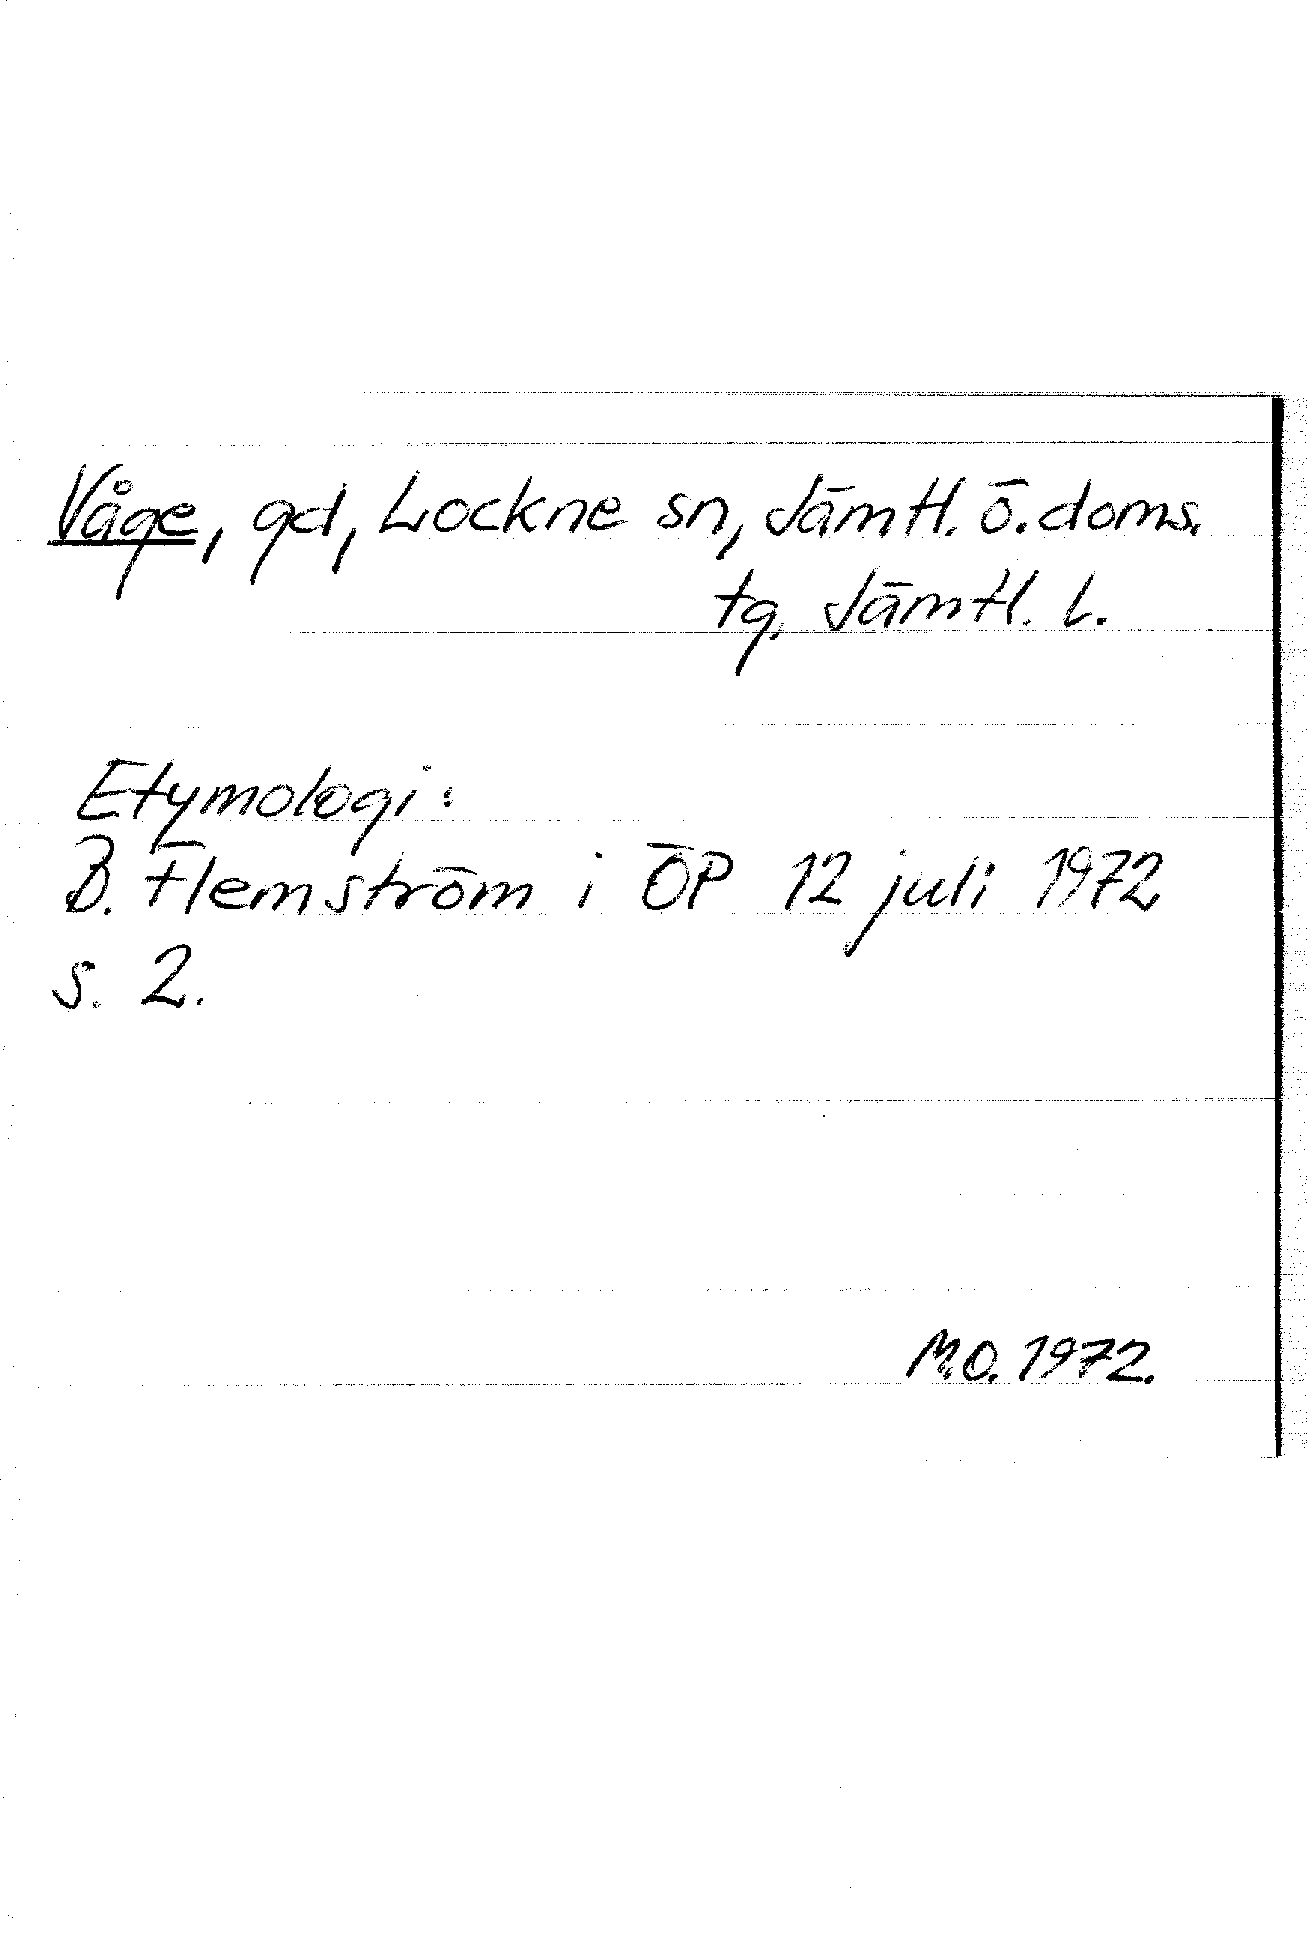 Våge, gd, Lockne sn, Jämtl. ö. doms.
tg. Jämtl. l.
Etymologi:
B. Flemström i ÖP 12 juli 1972
s. 2.
M.O. 1972.